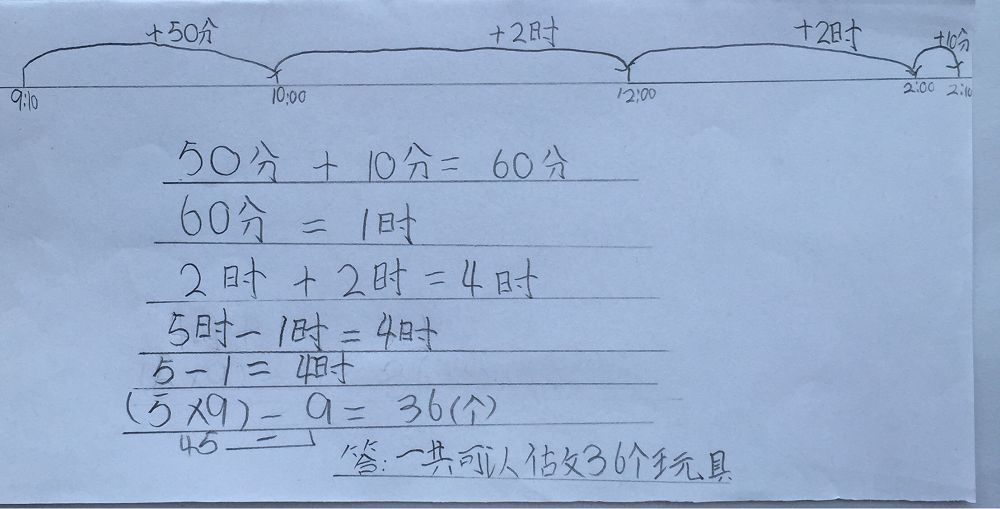 +50分 +2时 +2时 +10分
9:10 10:00 12:00 2:00 2:10
50分 + 10分 = 60分
60分 = 1时
2时 + 2时 = 4时
5时 - 1时 = 4时
5 - 1 = 4时
(5×9) - 9 = 36(个)
45 -
答:一共可以估女36个玩具